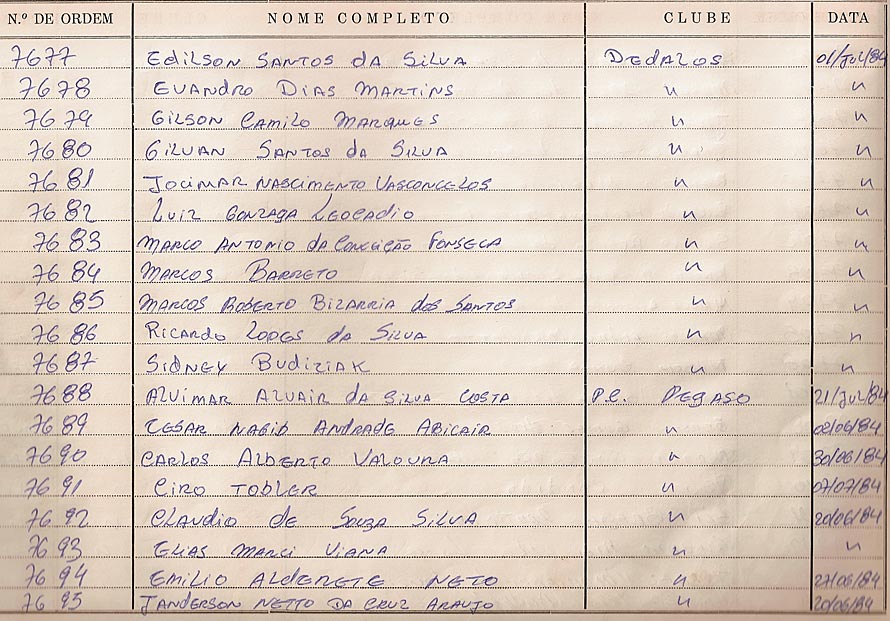 N.º DE ORDEM NOME COMPLETO CLUBE DATA
7677 Edilson Santos da Silva Dedalos 01/Jul/84
7678 Evandro Dias Martins " "
7679 Gilson Camilo Marques " "
7680 Gilvan Santos da Silva " "
7681 Jocimar Nascimento Vasconcelos " "
7682 Luiz Gonzaga Leocadio " "
7683 Marco Antonio da Conceição Fonseca " "
7684 Marcos Barreto " "
7685 Marcos Roberto Bizarria dos Santos " "
7686 Ricardo Lopes da Silva " "
7687 Sidney Budiziak " "
7688 Alvimar Alvair da Silva Costa P.C. Pegaso 21/Jul/84
7689 Cesar Nagib Andrade Abicair " /06/84
7690 Carlos Alberto Valoura " 30/06/84
7691 Ciro Tobler " 07/07/84
7692 Claudio de Souza Silva " 20/06/84
7693 Elias Marci Viana " "
7694 Emilio Alderete Neto " 27/06/84
7695 Janderson Netto da Cruz Araujo " 20/06/84